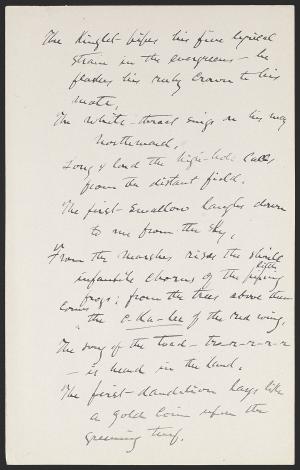 The Kinglet pipes his fine lyrical
strain in the evergreens – he
flashes his ruby crown to his
mate,
The white-throat sings on his way
northward,
Long & loud the high-hole calls
from the distant field.
The first swallow laughs down
to me from the sky,
From the marshes rises the shrill
infantile chorus of the little piping
frogs; from the trees above them
comes
the o-ka-lee of the red wing,
The song of the toad – tr-r-r-r-r-r
– is heard in the land.
The first dandelion lays like
a gold coin upon the
greening turf.